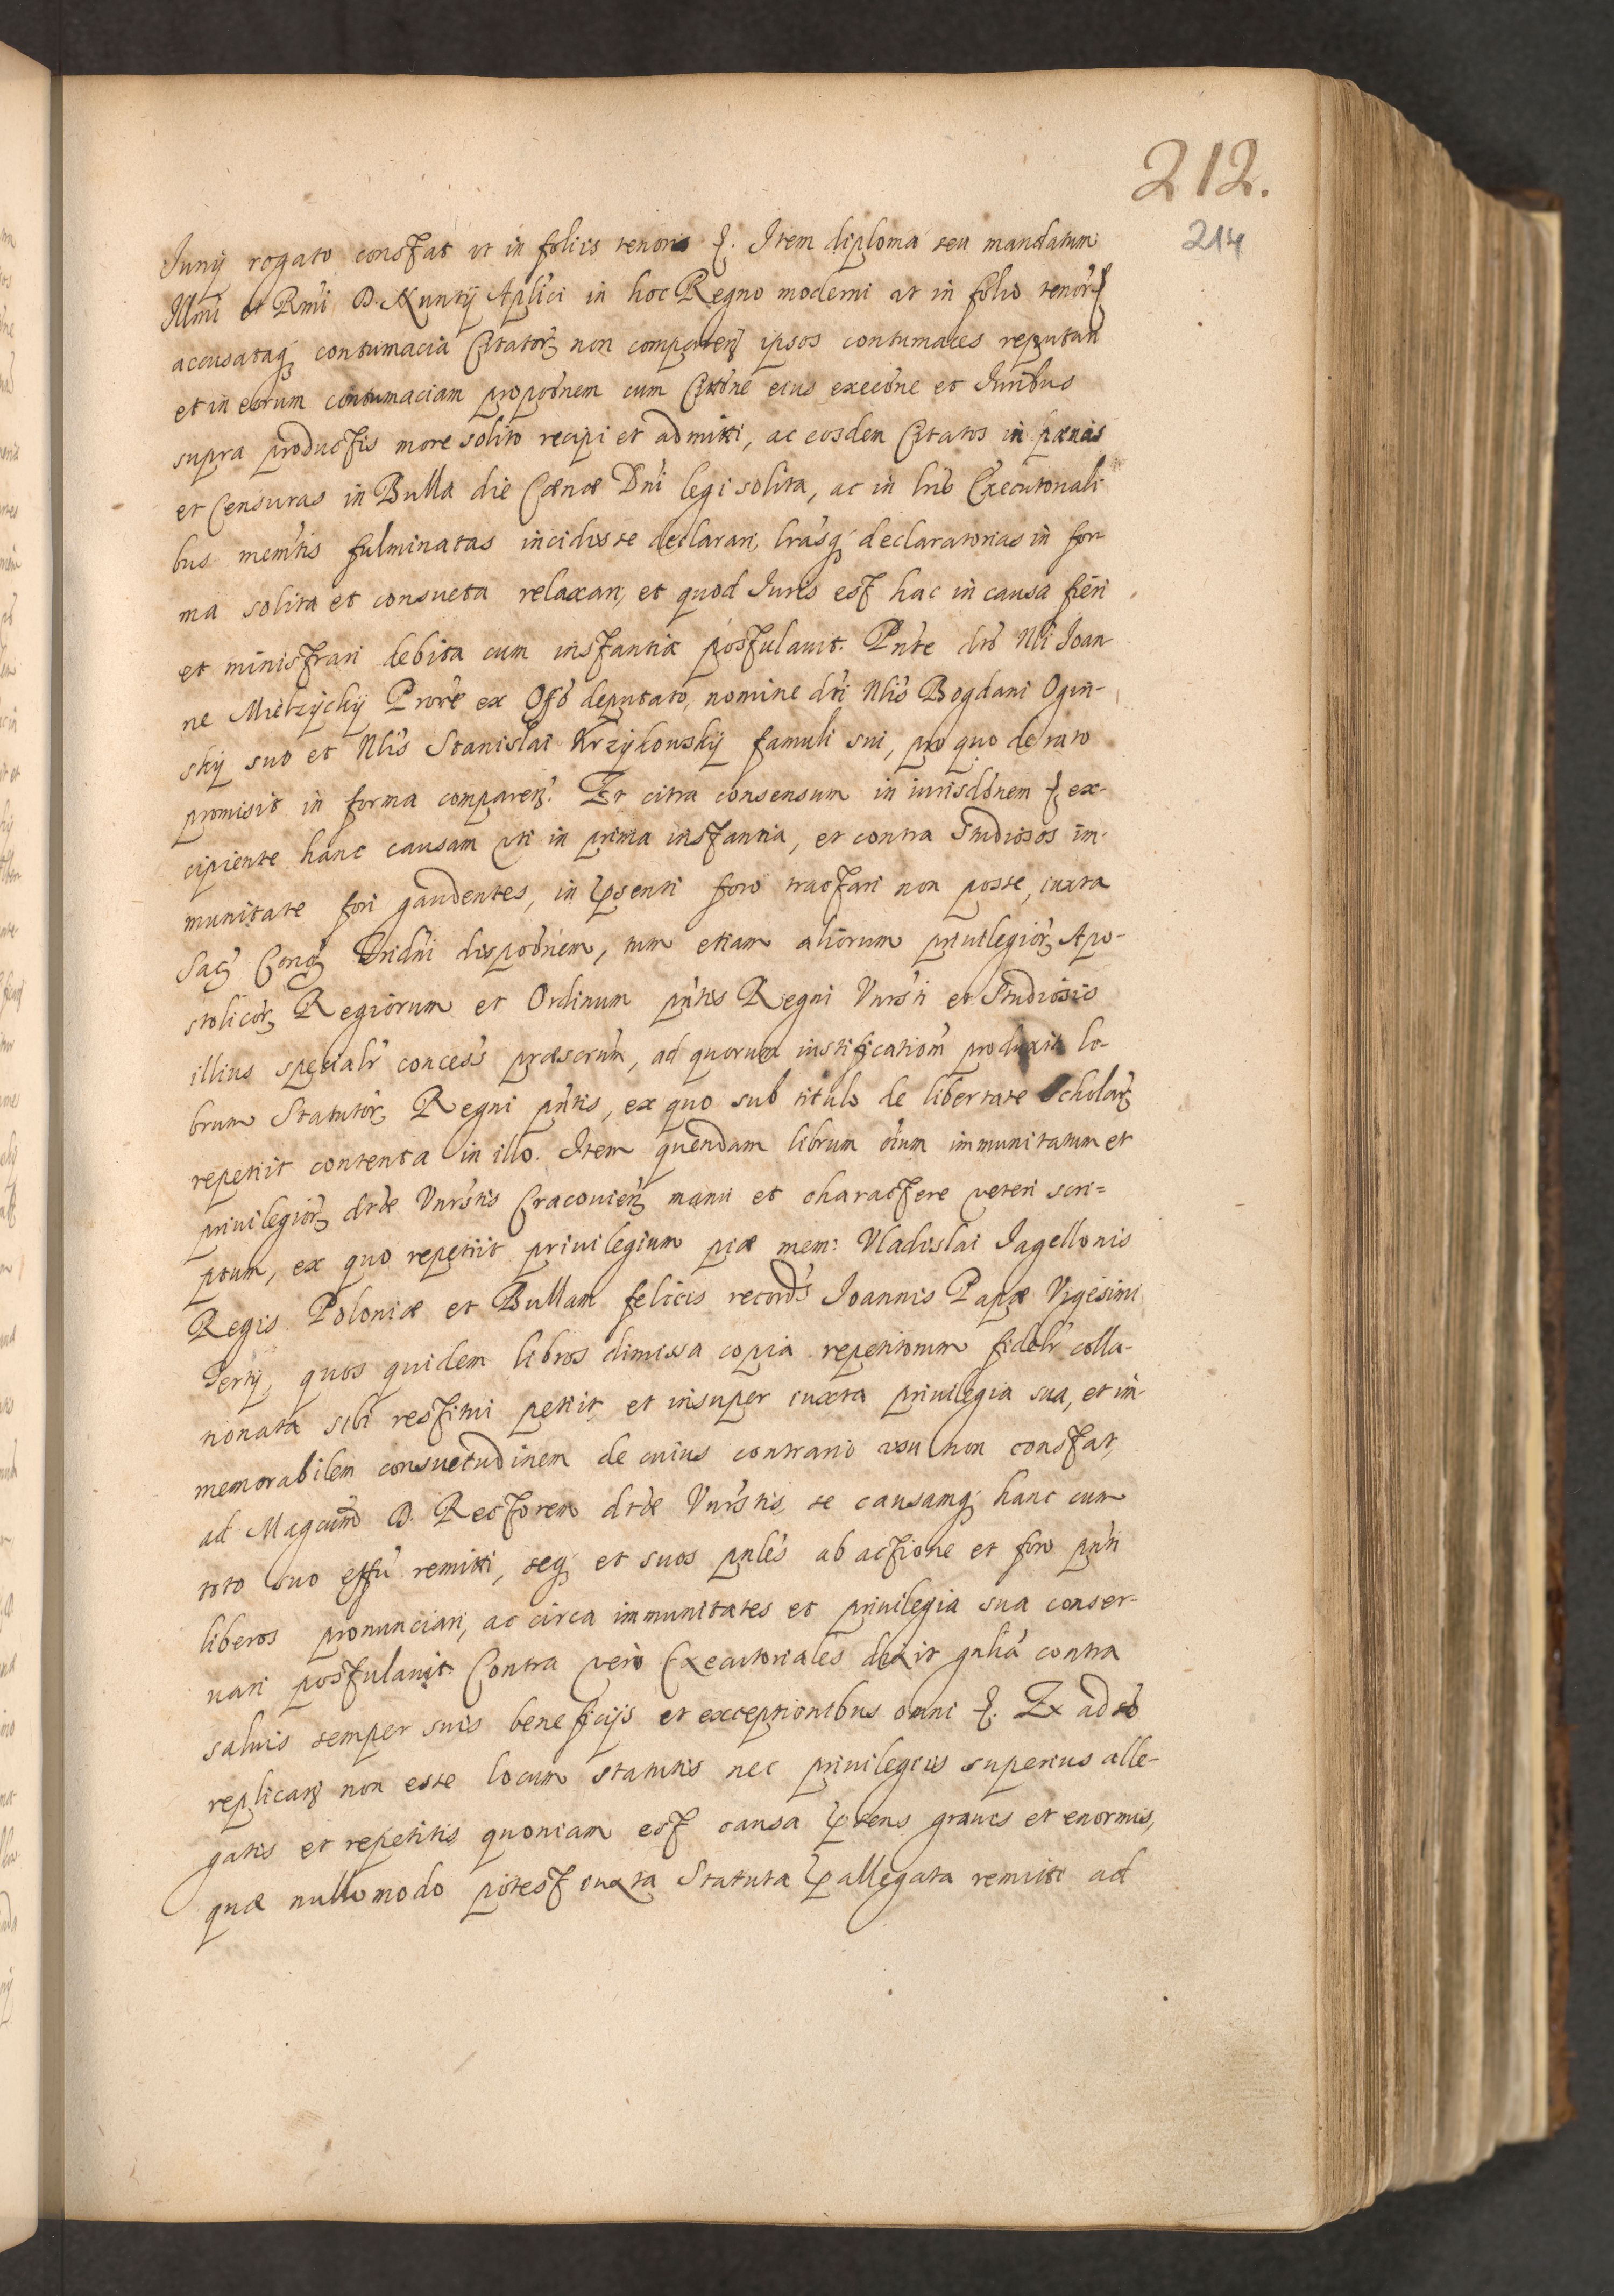 212.
214
Junij rogato constat vt in foliis tenoris &. Item diploma seu mandatum
Illmi et Rmi D. Nuntij Aplici in hoc Regno moderni vt in folio tenor &
accusataq contumacia Citator non comparen ipsos contumaces reputari
et in eorum contumaciam propoonem cum Citone eius execone et Juribus
supra productis more solito recipi et admitti, ac eosdem Citatos in pœnas
et Censuras in Bulla die Cœnæ Dni legi solita, ac in lris Executoriali
bus mentis fulminatas incidisse declarari, lrasq declaratorias in for
ma solita et consueta relaxari, et quod Juris est hac in causa fieri
et ministrari debita cum instantia postulauit. Pnte dto Nli Joan
ne Mietzÿckÿ Prore ex Offo deputato, nomine dti Nlis Bogdani Ogin-
skÿ suo et Nlis Stanislai Krzÿkowskÿ famuli sui, pro quo de rato
promisit in forma comparen. Et citra consensum in iurisdonem & ex-
cipiente hanc causam vti in prima instantia, et contra Studiosos im-
munitate fori gaudentes, in psenti foro tractari non posse, iuxta
Sac Conc Tridni dispoonem, tum etiam aliorum priuilegior Apo-
stolicor Regiorum et Ordinum pntis Regni Vnrsti et Studiosis
illius specialr concess præsertim, ad quorum iustification produxit li-
brum Statutor Regni pntis, ex quo sub titulo de libertate Scholar
repetiit contenta in illo. Item quendam librum oium immunitatum et
priuilegior dtæ Vnrstis Cracouien manu et charactere veteri scri=
ptum, ex quo repetiit priuilegium piæ mem: Vladislai Jagellonis
Regis Poloniæ et Bullam felicis records Joannis Papæ Vigesimi
Tertij, quos quidem libros dimissa copia repetitorum fidelr colla-
tionata sibi restitui petiit et insuper iuxta priuilegia sua, et im
memorabilem consuetudinem de cuius contrario vsu non constat,
ad Magcum D. Rectorem dtæ Vnrstis, se causamq hanc cum
toto suo effu remitti, seq et suos pnles ab actione et foro pnti
liberos pronunciari, ac circa immunitates et priuilegia sua conser-
uari postulauit. Contra vero Executoriales dixit gnlia contra
saluis semper suis beneficijs et exceptionibus omni &. Ex aduo
replican non esse locum statutis nec priuilegiis superius alle-
gatis et repetitis quoniam est causa psens grauis et enormis,
quæ nullo modo potest iuxta Statuta pallegata remitti ad